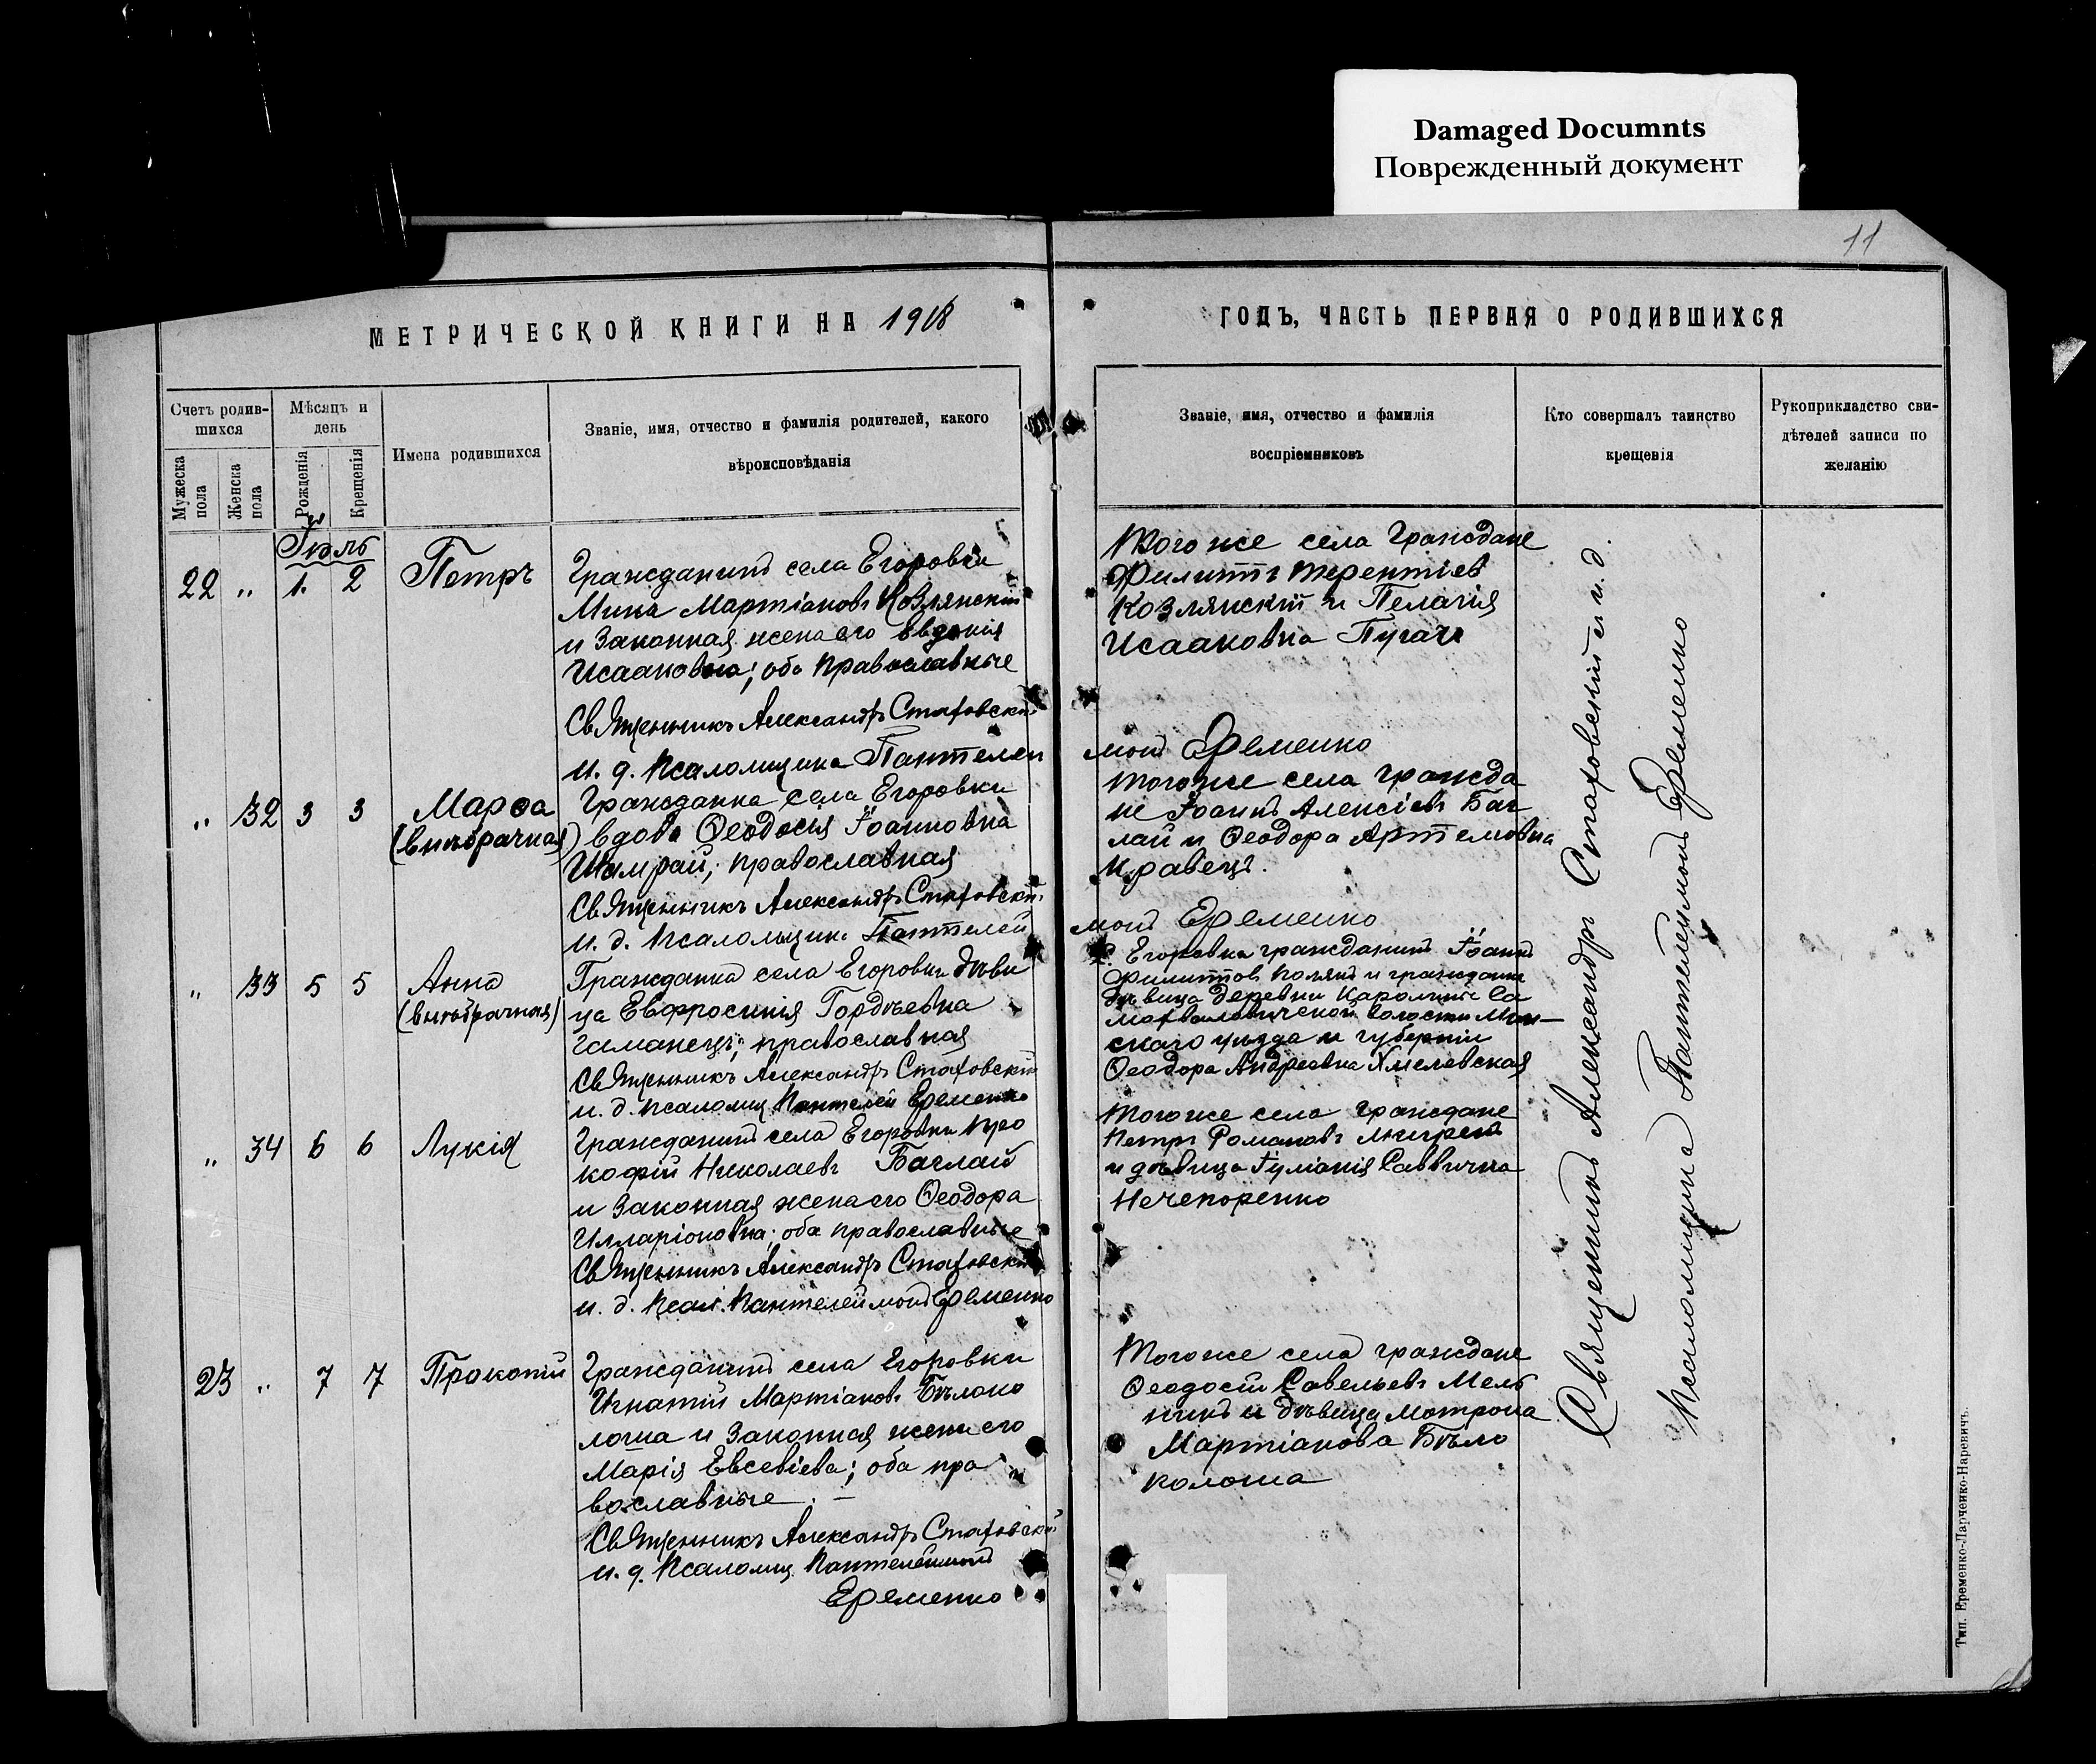 Damaged Documnts
Поврежденный документ
11
МЕТРИЧЕСКОЙ КНИГИ НА 1918
ГОДЪ, ЧАСТЬ ПЕРВАЯ О РОДИВШИХСЯ
Счетъ родив-
шихся
Мужеска пола
Женска пола
Мѣсяцъ и
день
Рожденія
Крещенія
Имена родившихся
Званіе, имя, отчество и фамилія родителей, какого
вѣроисповѣданія
Званіе, имя, отчество и фамилія
воспріемниковъ
Кто совершалъ таинство
крещенія
Рукоприкладство сви-
дѣтелей записи по
желанію
Іюль
22 „ 1. 2 Петръ
Гражданинъ села Егоровки
Мина Мартіановъ Козлянскій
и законная жена его Евдокія
Исааковна; оба православные
Священникъ Александръ Стаховскій
и. д. Псаломщика Пантелей
Того же села граждане
Филиппъ Терентіевъ
Козлянскій и Пелагія
Исааковна Пугачъ
монъ Еременко
„ 32 3 3 Марѳа
(внѣбрачная)
Гражданка села Егоровки
вдова Ѳеодосія Іоанновна
Шамрай; православная
Священникъ Александръ Стаховскій
и. д. Псаломщика Пантелей
того же села гражда
не Іоаннъ Алексіевъ Баг
лай и Ѳеодора Артемовна
Кравецъ.
монъ Еременко
„ 33 5 5 Анна
(внѣбрачная)
Гражданка села Егоровки дѣви
ца Евфросинія Гордѣевна
Гаманецъ; православная
Священникъ Александръ Стаховскій
и. д. псаломщ Пантелей Еременко
с. Егоровка гражданинъ Іоаннъ
Филипповъ и гражданка
дѣвица деревни Каролины Са
мохваловичской волости Мин-
скаго уѣзда и губерніи
Ѳеодора Андреевна Хмелевская
„ 34 6 6 Лукія
Гражданинъ села Егоровки Про
кофій Николаевъ Баглай
и законная жена его Ѳеодора
Илларіоновна; оба православные
Священникъ Александръ Стаховскій
и. д. Псал. Пантелеймонъ Еременко
Того же села граждане
Петръ Романовъ
и дѣвица Іуліанія Саввична
Нечепоренко
23 „ 7 7 Прокопій
Гражданинъ села Егоровки
Игнатій Мартіановъ Бѣлоко
лоша и законная жена его
Марія Евсевіева; оба пра
вославные. –
Священникъ Александръ Стаховскій
и. д. Псаломщ. Пантелеймонъ
Еременко
Того же села граждане
Ѳеодосій Савельевъ Мель
никъ и дѣвица Мотрона
Мартіанова Бѣло
колоша
Священникъ Александръ Стаховскій и и. д.
Псаломщика Пантелеймонъ Еременко
Тип. Еременко-Ларченко-Наревичъ.